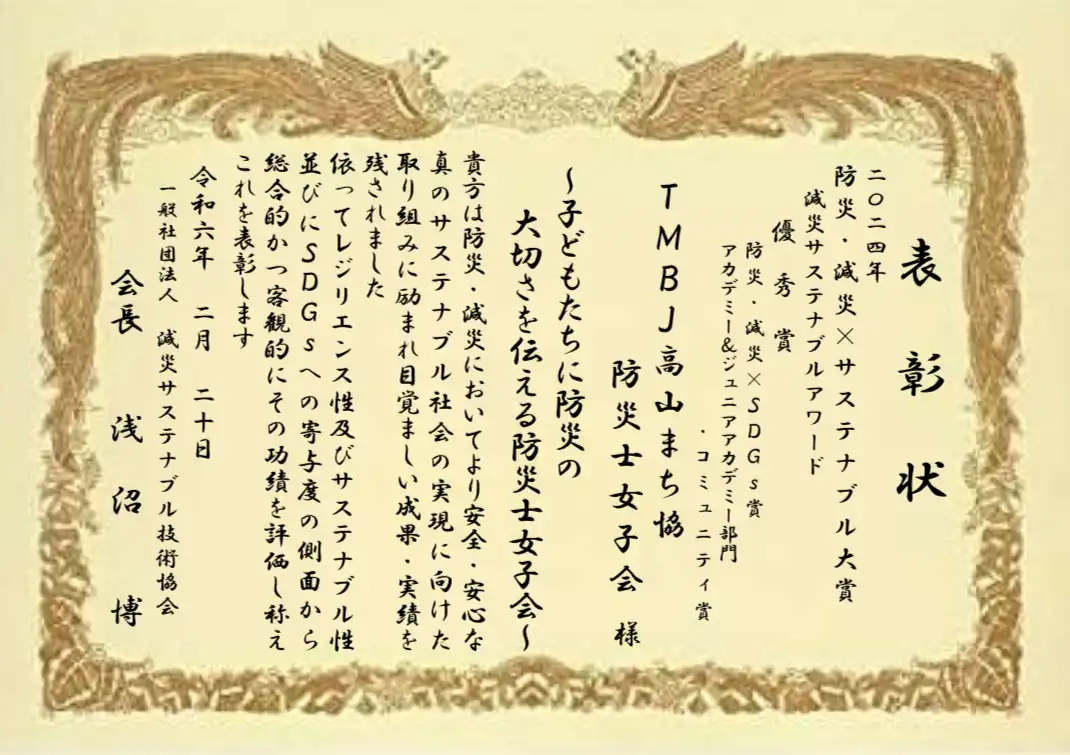 表彰状
二〇二四年
防災・減災×サステナブル大賞
減災サステナブルアワード
優秀賞
防災・減災×SDGs賞
アカデミー&ジュニアアカデミー部門
・コミュニティ賞
TMBJ高山まち協
防災士女子会 様
～子どもたちに防災の
大切さを伝える防災士女子会～
貴方は防災・減災においてより安全・安心な
真のサステナブル社会の実現に向けた
取り組みに励まれ目覚ましい成果・実績を
残されました
依ってレジリエンス性及びサステナブル性
並びにSDGsへの寄与度の側面から
総合的かつ客観的にその功績を評価し称え
これを表彰します
令和六年 二月 二十日
一般社団法人 減災サステナブル技術協会
会長 浅沼 博